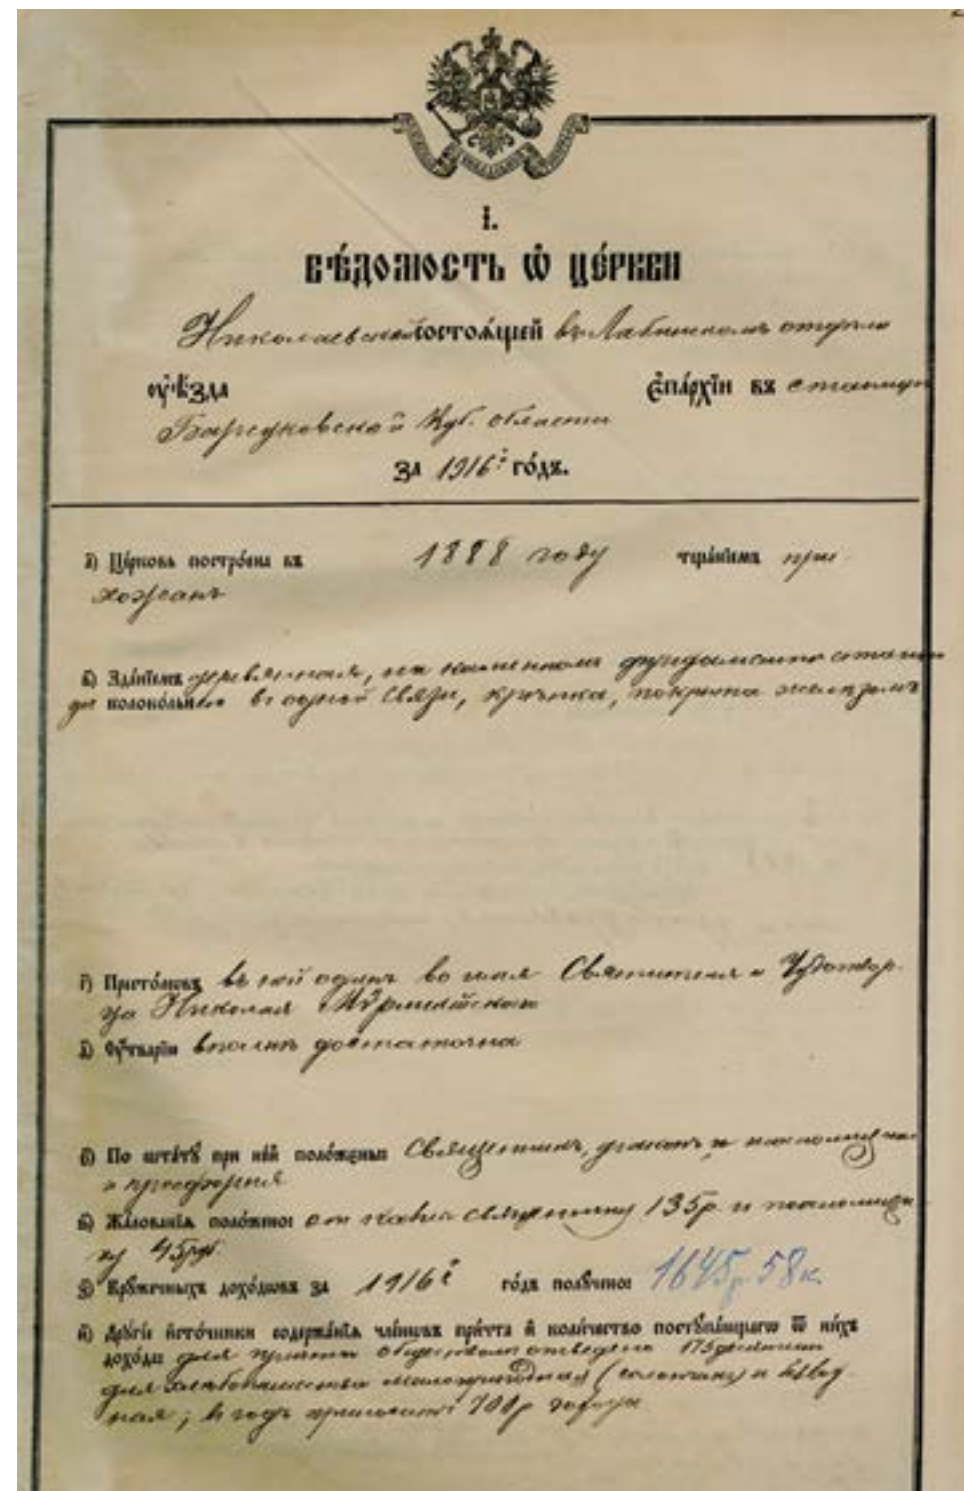 І.
Вѣ́домость ѡ҆ це́ркви
Николаевской состоѧ́щей въ Лабинскомъ отдѣлѣ
ᲂу҆ѣ́зда є҆па́рхїи въ станицѣ
Барсуковской Куб. области
за 1916 г҃ го́дъ.
а҃) Це́рковь постро́ена въ 1888 году тща́нїемъ при-
хожанъ
в҃) Зда́нїемъ деревянная, на каменномъ фундаментѣ
колоко́льнею въ одной связи, крѣпка, покрыта желѣзомъ
г҃) Престо́ловъ въ ней одинъ во имя Святителя и Чудотвор-
ца Николая Мѵрликійскаго
д҃) Оу҆́тварїю вполнѣ достаточна
є҃) По шта́тꙋ при не́й поло́жены Священникъ, діаконъ и псаломщикъ
и просфорня
ѕ҃) Жа́лованїѧ поло́жено: отъ казны священнику 135р. и псаломщи-
ку 45руб.
з҃) Крꙋ́жечныхъ дохо́довъ за 1916 г. го́дъ полꙋ́чено: 1645р. 58к.
и҃) Дрꙋгі́е и҆сто́чники содержа́нїѧ чле́новъ при́чта и҆ коли́чество постꙋпа́ющагѡ ѿ ни́хъ
дохо́да: для причта обществомъ отведено 175 десятинъ
для хлѣбопашества малопригодная (солончакъ) и
; въ годъ приноситъ 700р.